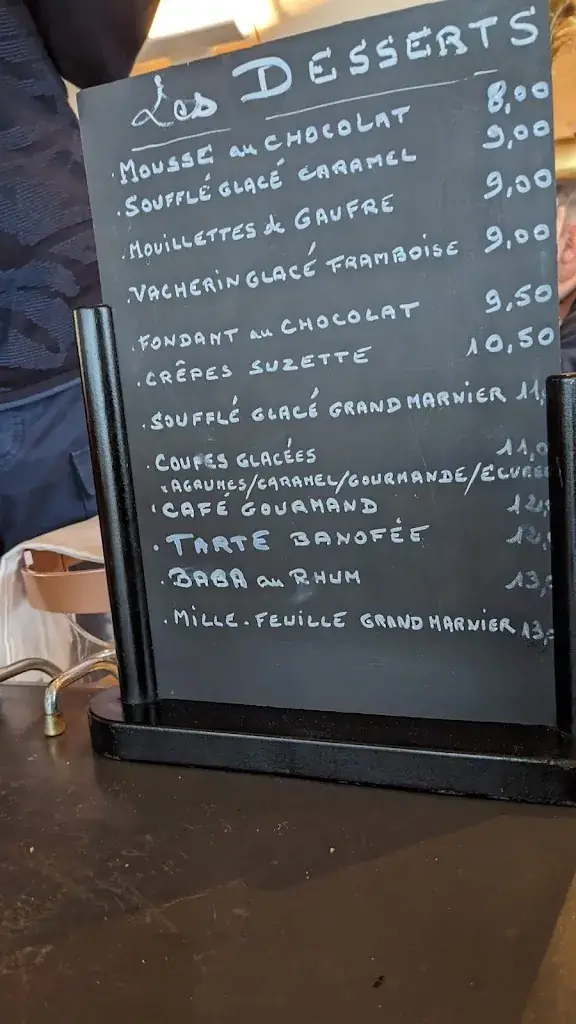 Les DESSERTS
. MOUSSE au CHOCOLAT 8,00
. SOUFFLÉ GLACÉ CARAMEL 9,00
. MOUILLETTES de GAUFRE 9,00
. VACHERIN GLACÉ FRAMBOISE 9,00
. FONDANT au CHOCOLAT 9,50
. CRÊPES SUZETTE 10,50
. SOUFFLÉ GLACÉ GRAND MARNIER 11,
. COUPES GLACÉES 11,0
* AGRUMES/CARAMEL/GOURMANDE/
. CAFÉ GOURMAND 12,
. TARTE BANOFÉE 12,
. BABA au RHUM 13,
. MILLE-FEUILLE GRAND MARNIER 13,